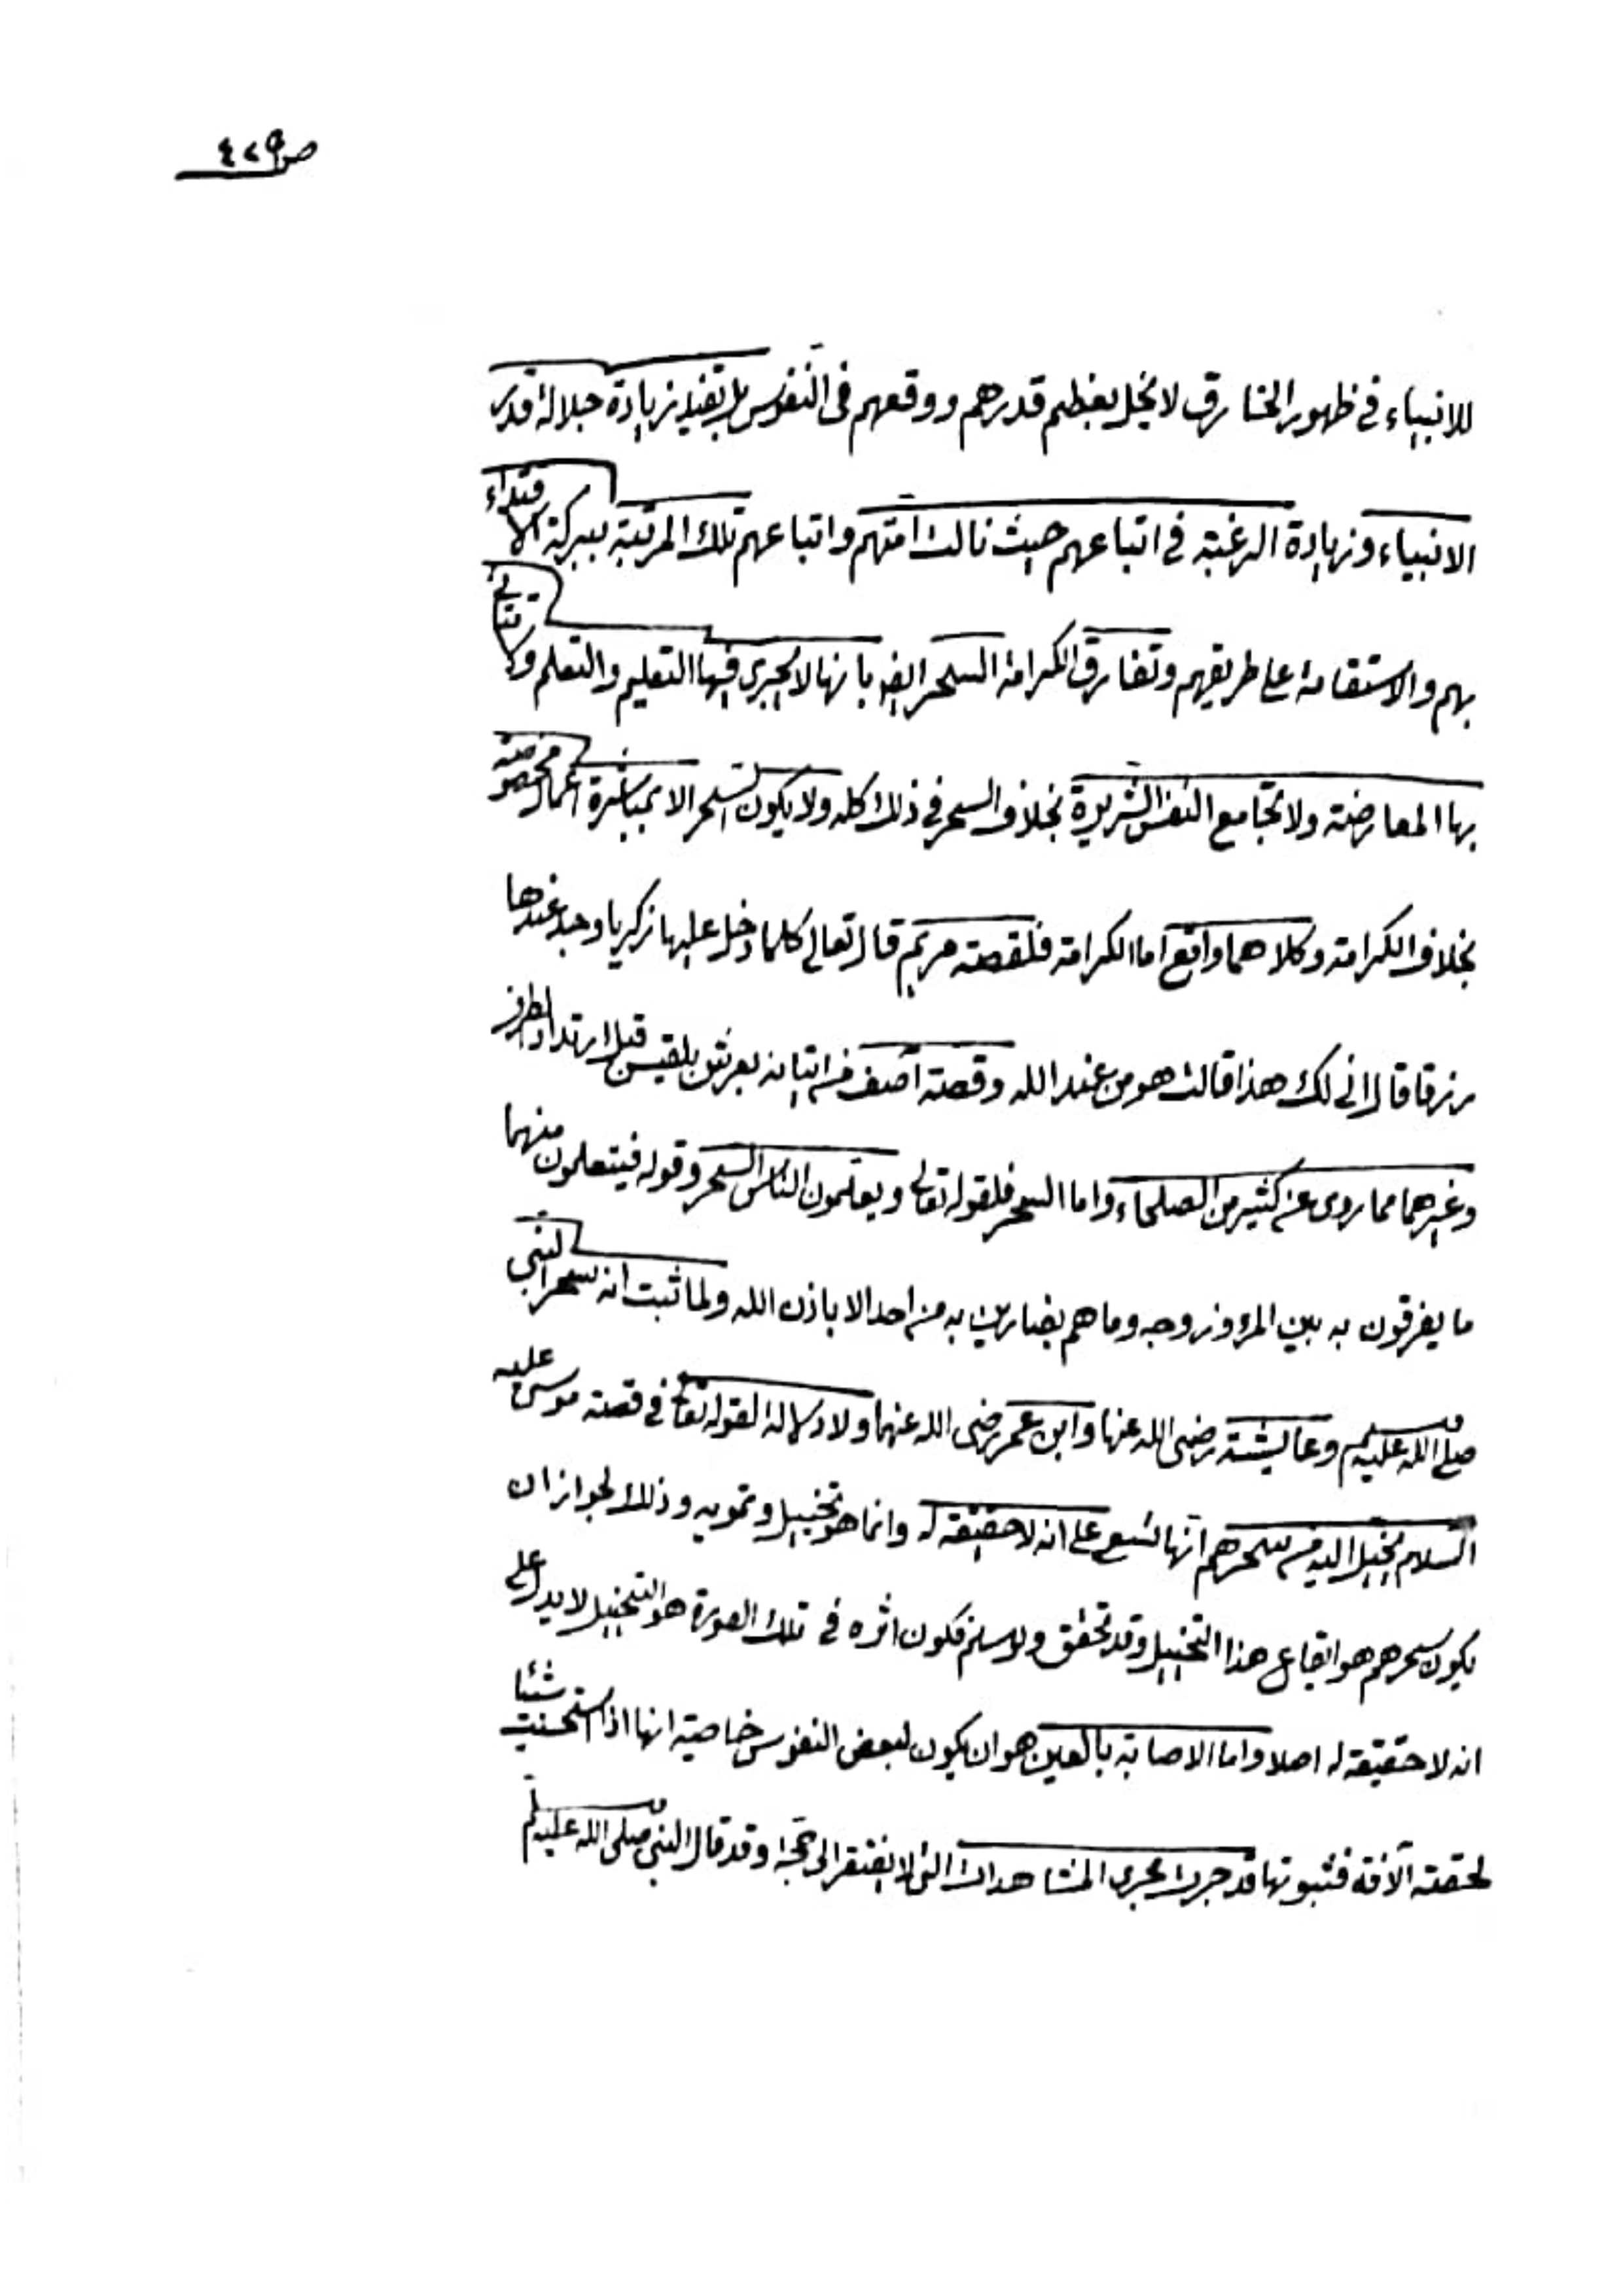 ص ٤٢٩
للانبياء في ظهور الخارق لا يخل بعظم قدرهم ووقعهم في النفوس بل تفيد زيادة جلالة قدر
الانبياء وزيادة الرغبة في اتباعهم حيث نالت امتهم واتباعهم تلك المرتبة ببركة الاقتداء
بهم والاستقامة على طريقهم وتفارق الكرامة السحر ايضا بانها لا يجري فيها التعليم والتعلم ولا تتأتى
بها المعارضة ولا تجامع النفس الشريرة بخلاف السحر في ذلك كله ولا يكون السحر الا بمباشرة اعمال مخصوصة
بخلاف الكرامة وكلاهما واقع اما الكرامة فلقصة مريم قال تعالى كلما دخل عليها زكريا وجد عندها
رزقا قال انى لك هذا قالت هو من عند الله وقصة آصف من اتيانه بعرش بلقيس قبل ارتداد الطرف
وغيرهما مما روى عن كثير من الصلحاء واما السحر فلقوله تعالى ويعلمون الناس السحر وقوله فيتعلمون منهما
ما يفرقون به بين المرء وزوجه وما هم بضارين به من احد الا باذن الله ولما ثبت انه سحر النبي
صلى الله عليه وسلم وعايشة رضى الله عنها وابن عمر رضى الله عنهما ولا دلالة لقوله تعالى في قصة موسى عليه
السلام يخيل اليه من سحرهم انها تسعى على انه لا حقيقة له وانما هو تخييل وتمويه وذلك لجواز ان
يكون سحرهم هو ايقاع هذا التخييل وقد تحقق ولو سلم فكون اثره في تلك الصورة هو التخييل لا يدل على
انه لا حقيقة له اصلا واما الاصابة بالعين هو ان يكون لبعض النفوس خاصية انها اذا استحسنت شئا
لحقته الآفة فثبوتها قد جرت مجرى المشاهدات التى لا يفتقر الى حجة وقد قال النبي صلى الله عليه وسلم